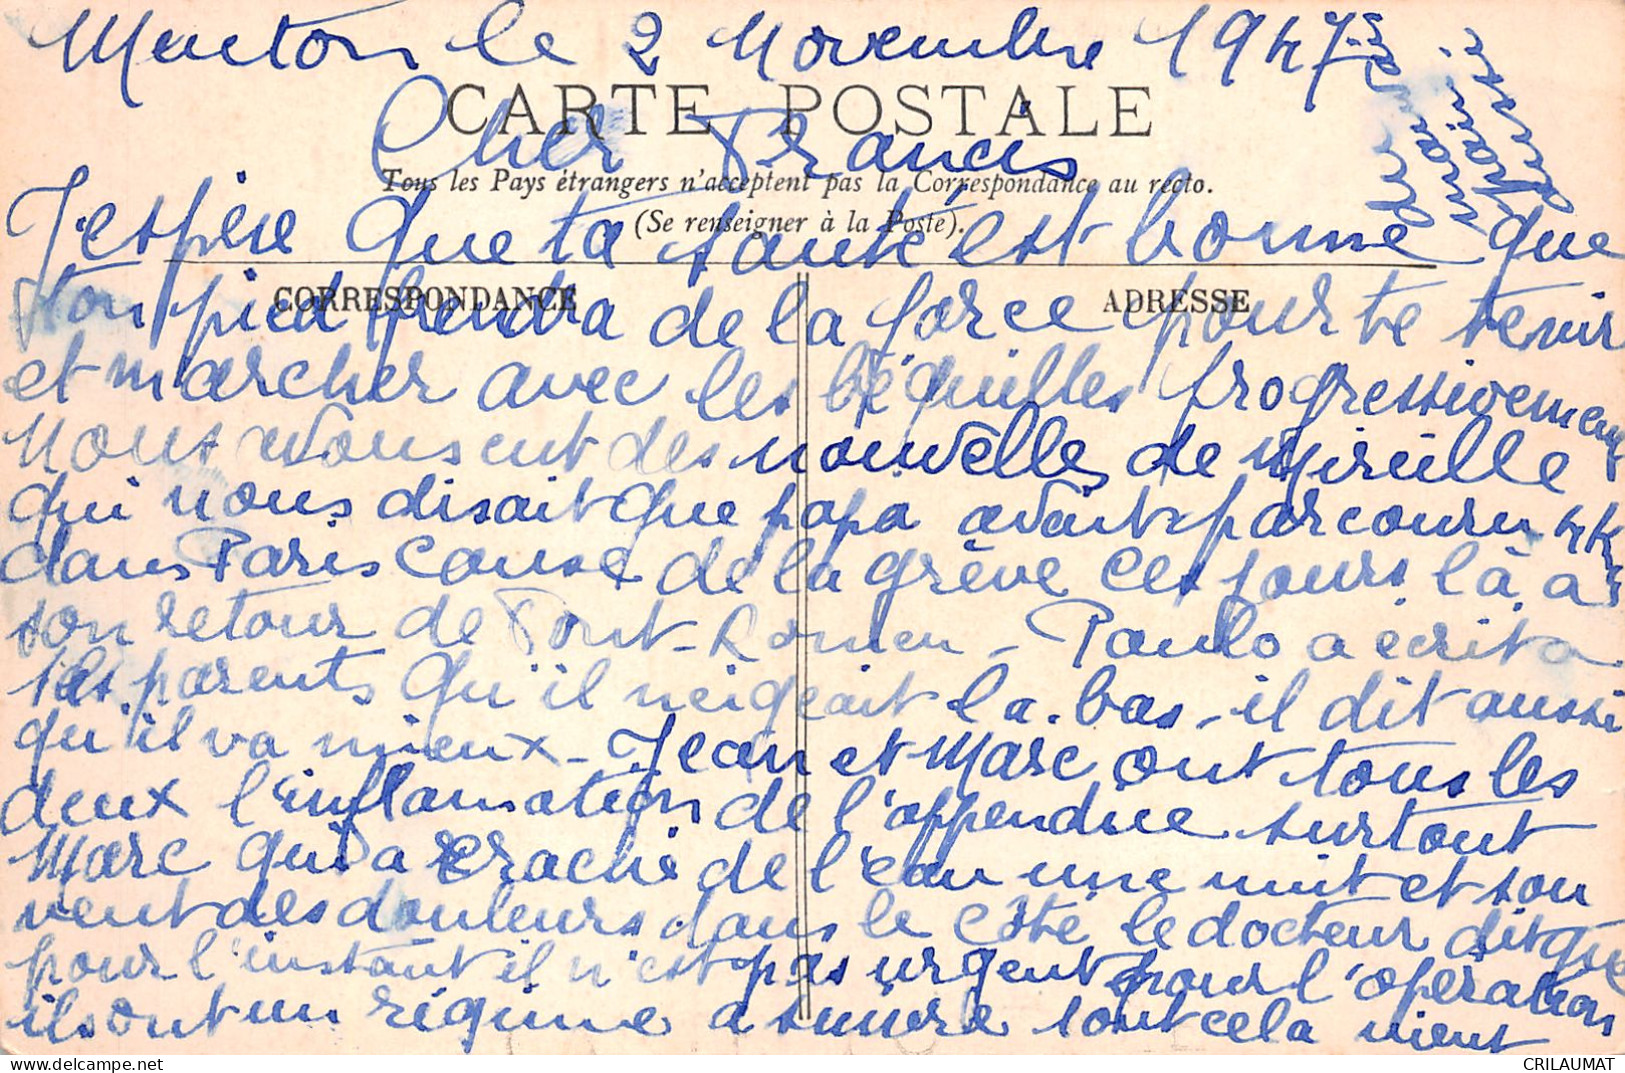 Menton le 2 Novembre 1947
CARTE POSTALE
Cher Francis
Tous les Pays étrangers n'acceptent pas la Correspondance au recto.
(Se renseigner à la Poste).
J'espère que ta santé est bonne que
CORRESPONDANCE
ADRESSE
ton pied prendra de la force pour te tenir
et marcher avec les béquilles progressivement
nous avons eut des nouvelles de Mireille
qui nous disait que papa avait parcouru 4K
dans Paris cause de la grève ces jours là à
son retour de Font-Romeu - Paulo a ecrit a
ses parents qu'il neigeait la-bas - il dit aussi
qu'il va mieux - Jean et Marc ont tous les
deux l'inflamation de l'appendice surtout
Marc qui a craché de l'eau une nuit et son
vent des douleurs dans le côté le docteur dit que
pour l'instant il n'est pas urgent pour l'opération
ils ont un régime a suivre tout cela vient
mauvais
CRILAUMAT